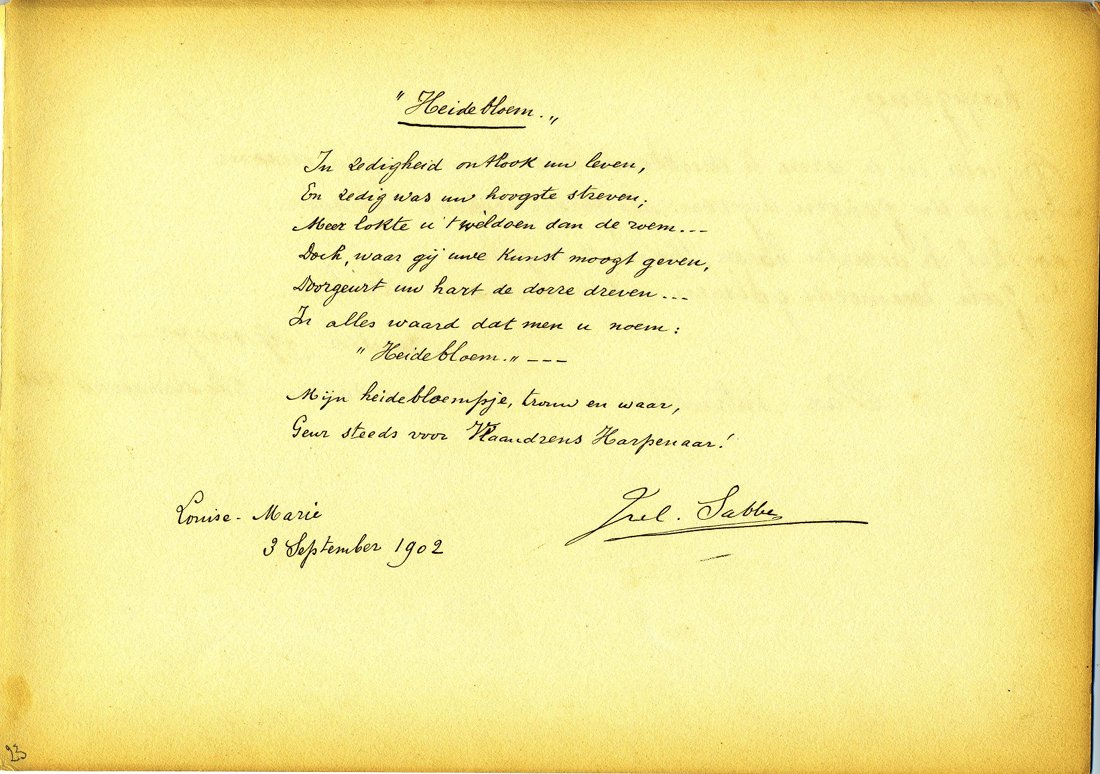 "Heidebloem."
In zedigheid ontlook uw leven,
En zedig was uw hoogste streven;
Meer lokte u 't wèldoen dan de roem...
Doch, waar gij uwe kunst moogt geven,
Doorgeurt uw hart de dorre dreven...
In alles waard dat men u noem:
"Heidebloem." ---
Mijn heidebloempje, trouw en waar,
Geur steeds voor Vlaandrens Harpenaar!
Jul. Sabbe
Louise-Marie
3 September 1902
23